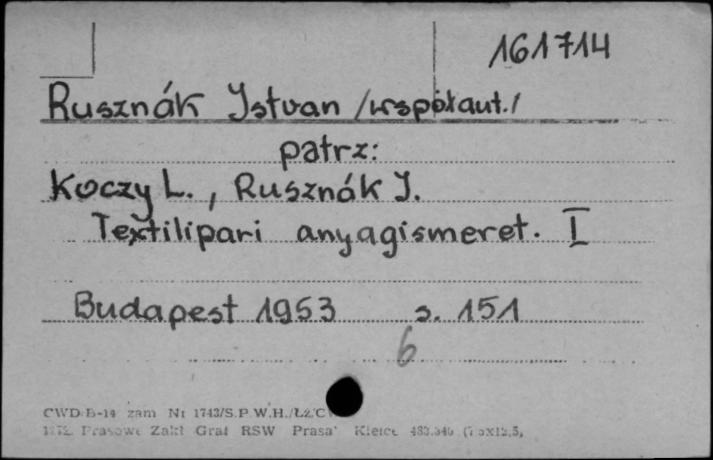 161714
Rusznák Istvan /współaut./
patrz:
Koczy L., Rusznák I.
Textilipari anyagismeret. I
Budapest 1953 s. 151
6
CWD B-14 zam Nr 1743/S.P.W.H./Łż.C
Prasowe Zakł Graf RSW Prasa" Kielce